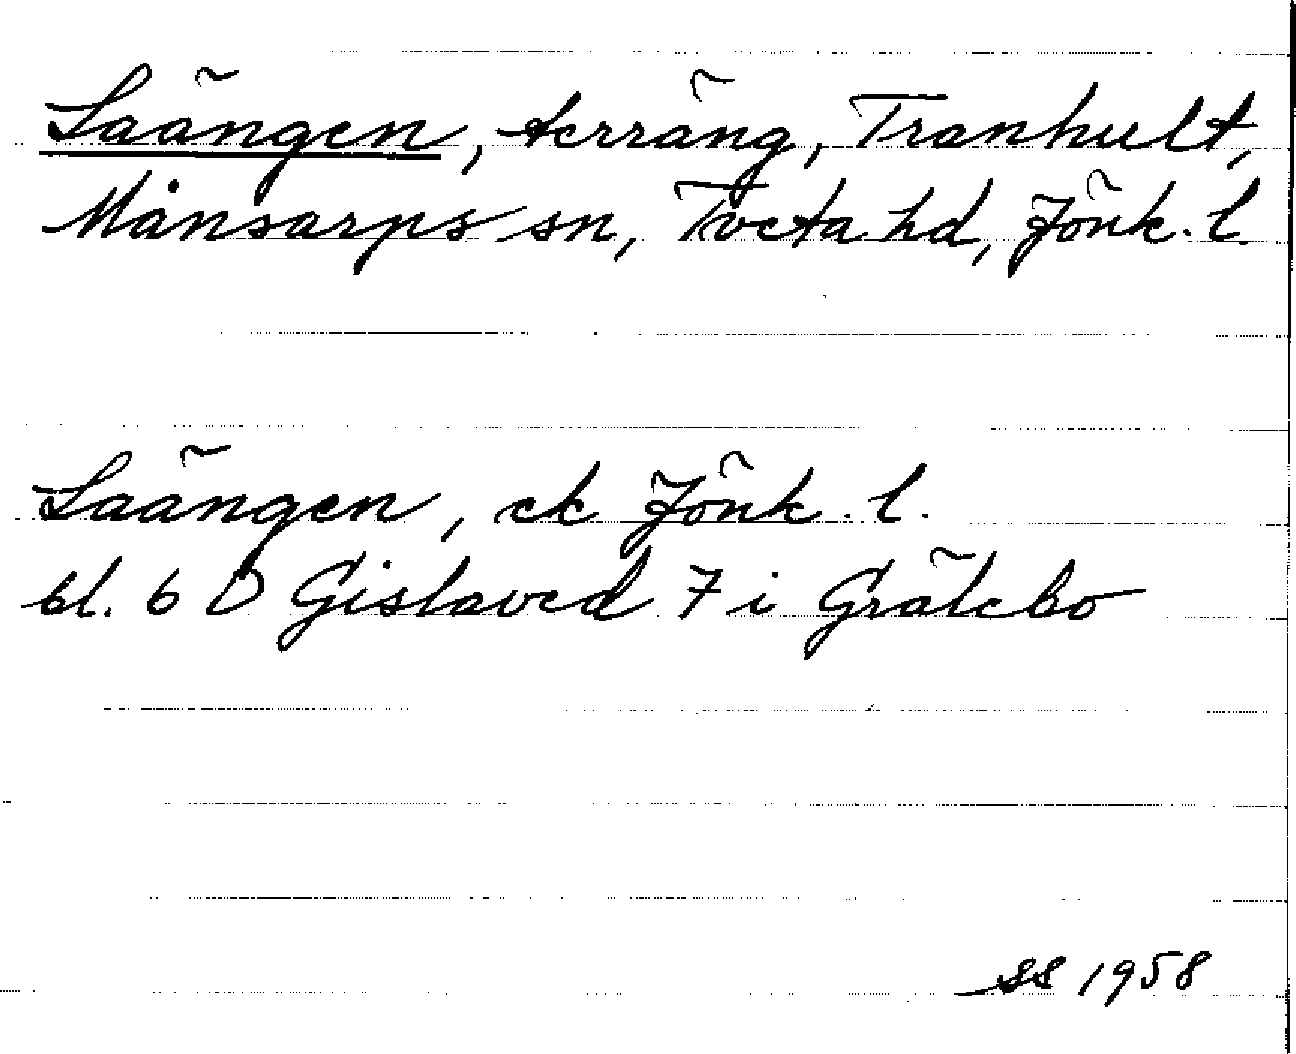 Laängen, terräng, Tranhult,
Månsarps sn, Tveta hd, Jönk. l.
Laängen, ek Jönk. l.
bl. 6 D Gislaved 7 i Grälebo
SS 1958